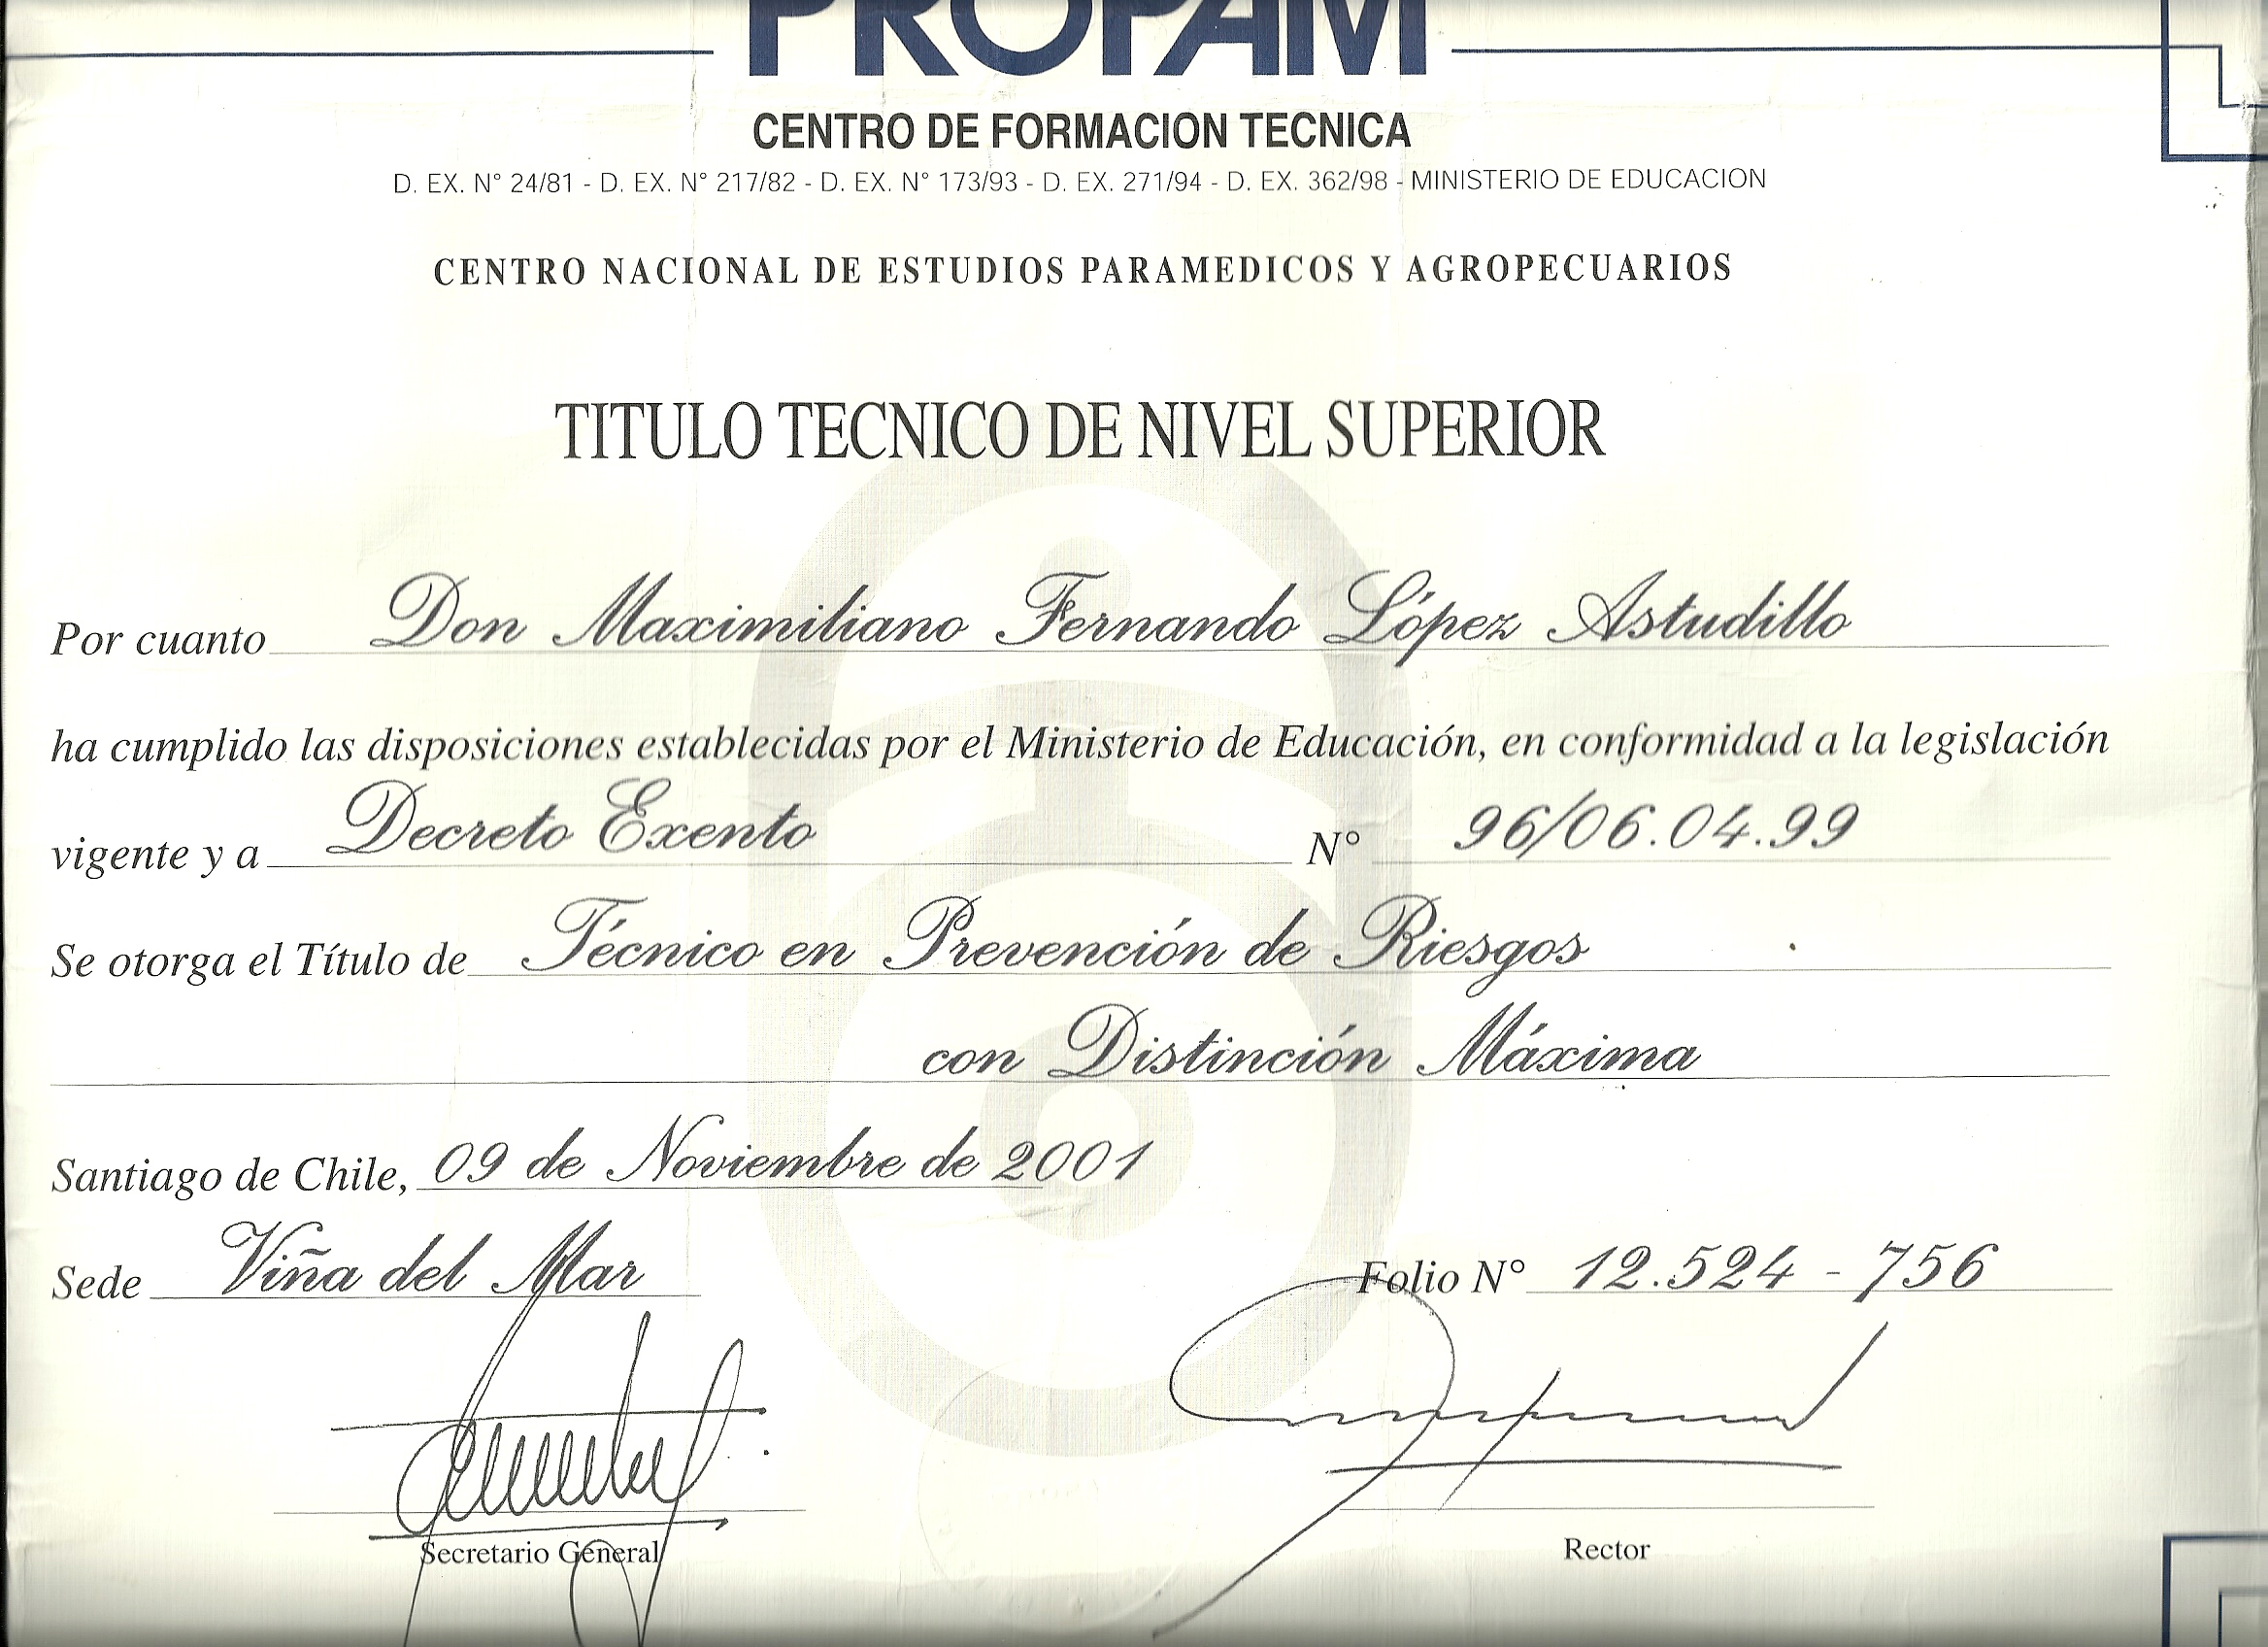 PROPAM
CENTRO DE FORMACION TECNICA
D. EX. N° 24/81 - D. EX. N° 217/82 - D. EX. N° 173/93 - D. EX. 271/94 - D. EX. 362/98 - MINISTERIO DE EDUCACION
CENTRO NACIONAL DE ESTUDIOS PARAMEDICOS Y AGROPECUARIOS
TITULO TECNICO DE NIVEL SUPERIOR
Por cuanto Don Maximiliano Fernando López Astudillo
ha cumplido las disposiciones establecidas por el Ministerio de Educación, en conformidad a la legislación
vigente y a Decreto Exento N° 96/06.04.99
Se otorga el Título de Técnico en Prevención de Riesgos
con Distinción Máxima
Santiago de Chile, 09 de Noviembre de 2001
Sede Viña del Mar Folio N° 12.524 - 756
Secretario General Rector